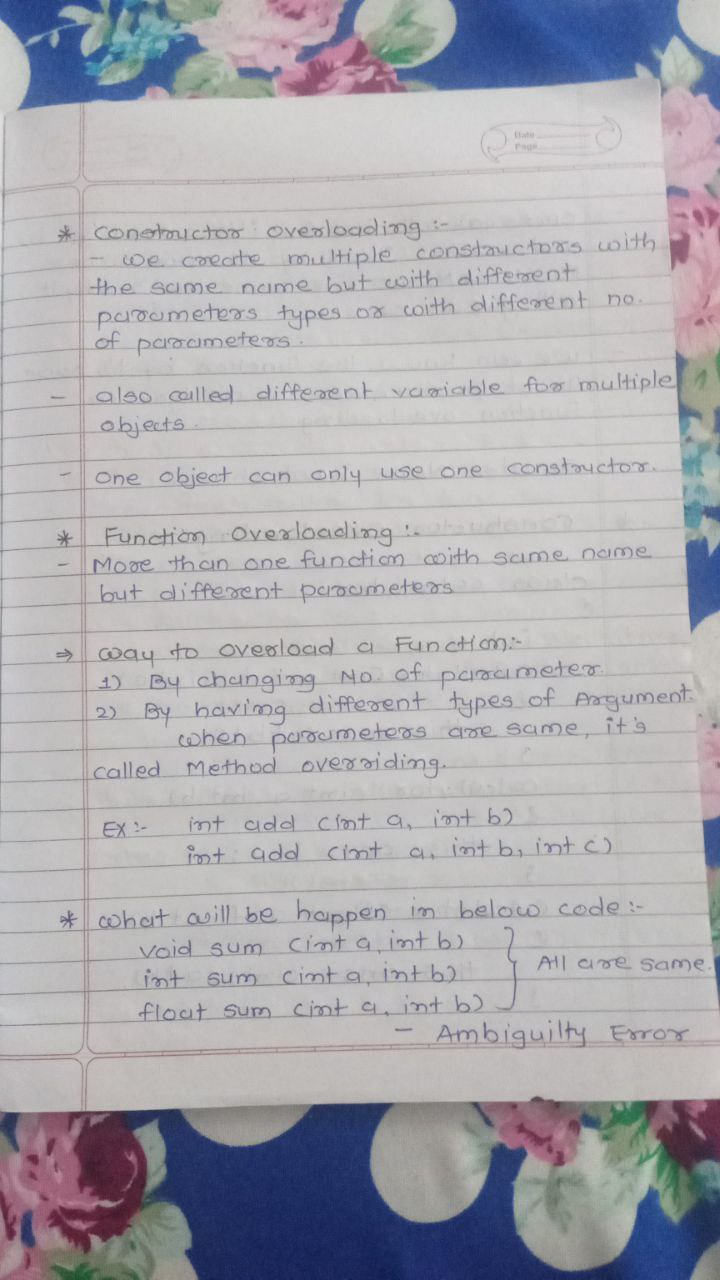 Date
Page
* constructor overloading :-
- we create multiple constructors with
the same name but with different
parameters types or with different no.
of parameters.
- also called different variable for multiple
objects.
- one object can only use one constructor.
* Function Overloading :-
- More than one function with same name
but different parameters
⇒ way to overload a Function:-
1) By changing No. of parameter.
2) By having different types of Argument.
when parameters are same, it's
called Method overriding.
EX :- int add (int a, int b)
int add (int a, int b, int c)
* what will be happen in below code :-
void sum (int a, int b)
int sum (int a, int b) } All are same.
float sum (int a, int b)
- Ambiguilty Error